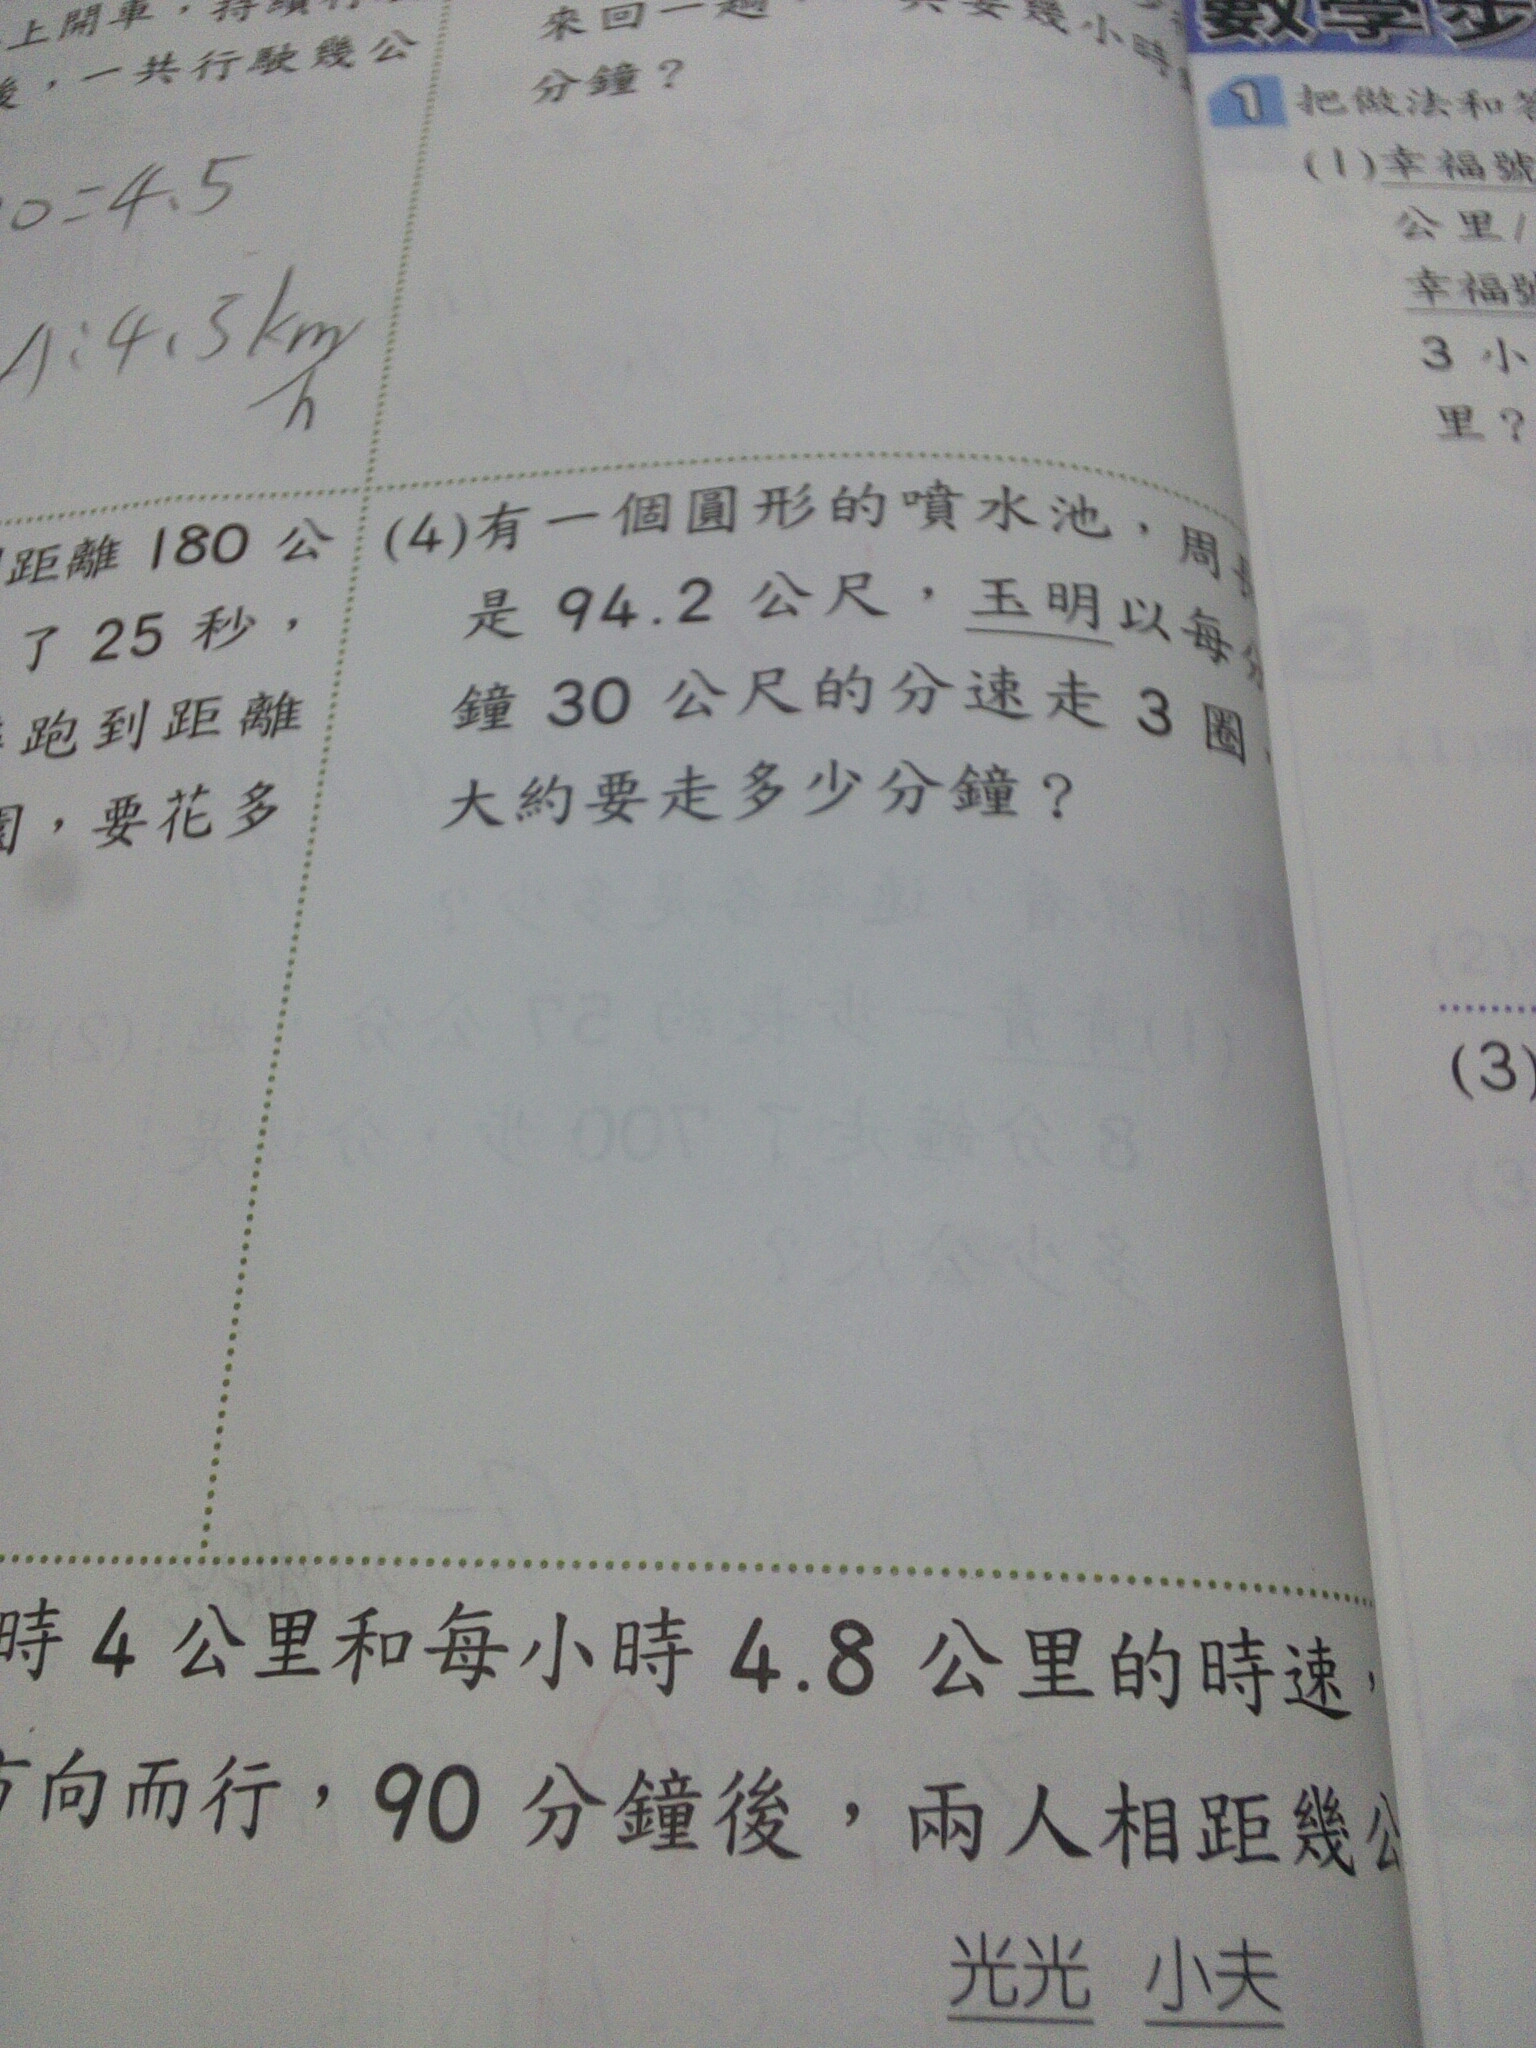 上開車,持續行
後,一共行駛幾公
0=4.5
A:4.5km/h
來回一趟
共要幾小時
分鐘?
距離 180 公
了 25 秒,
跑到距離
,要花多
(4)有一個圓形的噴水池,周長
是 94.2 公尺,玉明以每分
鐘 30 公尺的分速走 3 圈,
大約要走多少分鐘?
時 4 公里和每小時 4.8 公里的時速,
方向而行,90 分鐘後,兩人相距幾公
光光 小夫
數學步
1 把做法和答
(1)幸福號
公里/
幸福號
3 小
里?
(3)